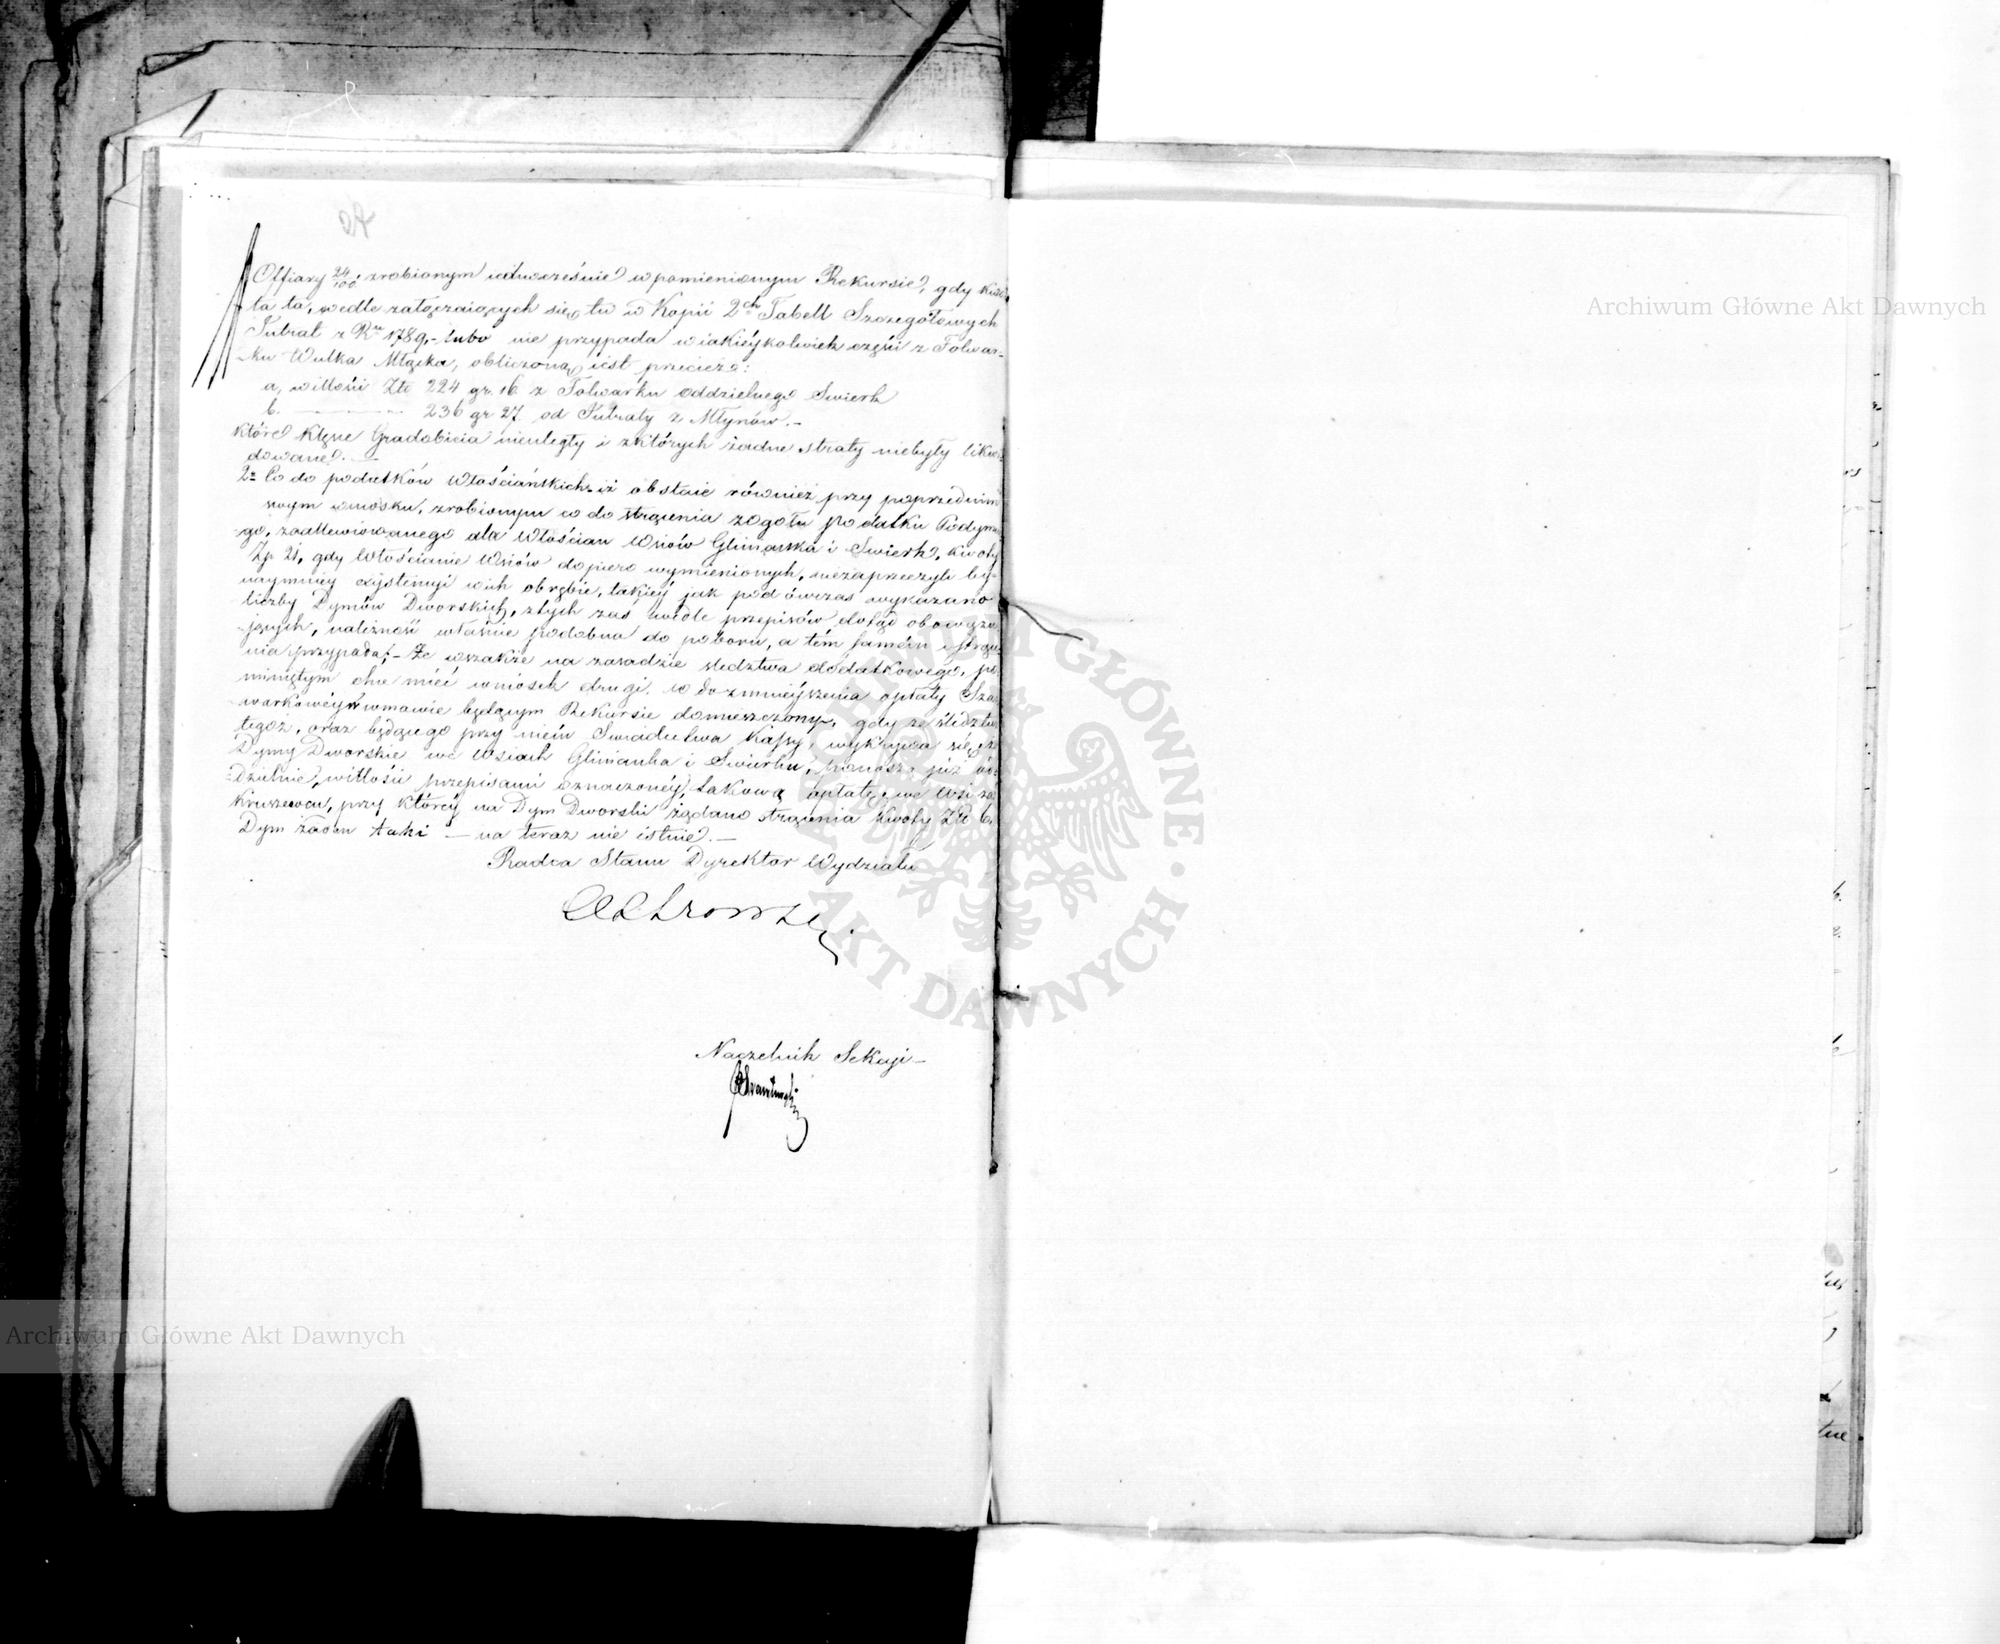 Offiary 24/100 zrobionym iednocześnie wpomienionym Rekursie, gdy kwo
ta ta, wedle załączaiących się tu w Kopii 2ch Tabell Szczegółowych
Intrat z Ru 1789,- lubo nie przypada wiakiéykolwiek części z Folwar-
ku Wulka Mlącka, obliczoną iest przecież:
a, willości Złt 224 gr. 16 z Folwarku oddzielnego Swierk
b. 236 gr 27. od Intraty z Młynów.-
które klęsce Gradobicia nieuległy i zktórych żadne straty niebyły likwi-
dowane.
2o Co do podatków Włościańskich iż obstaie również przy poprzednim
swym wniosku, zrobionym wdo strącenia zogołu podatku Podymne-
go, zaallewiowanego dla Włościan Wsiów Glinianka i Swierk, kwoty
Zp 21, gdy Włościanie Wsiów dopiero wymienionych, niezaprzeczyli by-
naymniey exystencyi wich obrębie, takiéy jak pod ówczas wykazano
liczby Dymów Dworskich, ztych zaś wedle przepisów dotąd obowiązu-
jących, należność właśnie podobna do poboru, a tém samém strące-
nia przypada;- Ze wszakże na zasadzie śledztwa dodatkowego, po-
miniętym chce mieć wniosek drugi. wdo zmnieyszenia opłaty Sza-
warkowéy wmowie będącym Rekursie domieszczony, gdy ze śledztwa
tegoż, oraz będącego przy niém Swiadectwa Kassy, wykrywa się, że
Dymy Dworskie we Wsiach Glinianka i Swierku, ponoszą już od-
dzielnie, willości przepisami oznaczonéy, takową opłatę, we Wsi zaś
Kruszewcu, przy któréy na Dym Dworski żądano strącenia kwoty Złt 6.
Dym żaden taki — na teraz nie istnie.—
Radca Stanu Dyrektor Wydziału
Naczelnik Sekcyi—
Archiwum Główne Akt Dawnych
Archiwum Główne Akt Dawnych
ARCHIWUM GŁÓWNE · AKT DAWNYCH ·